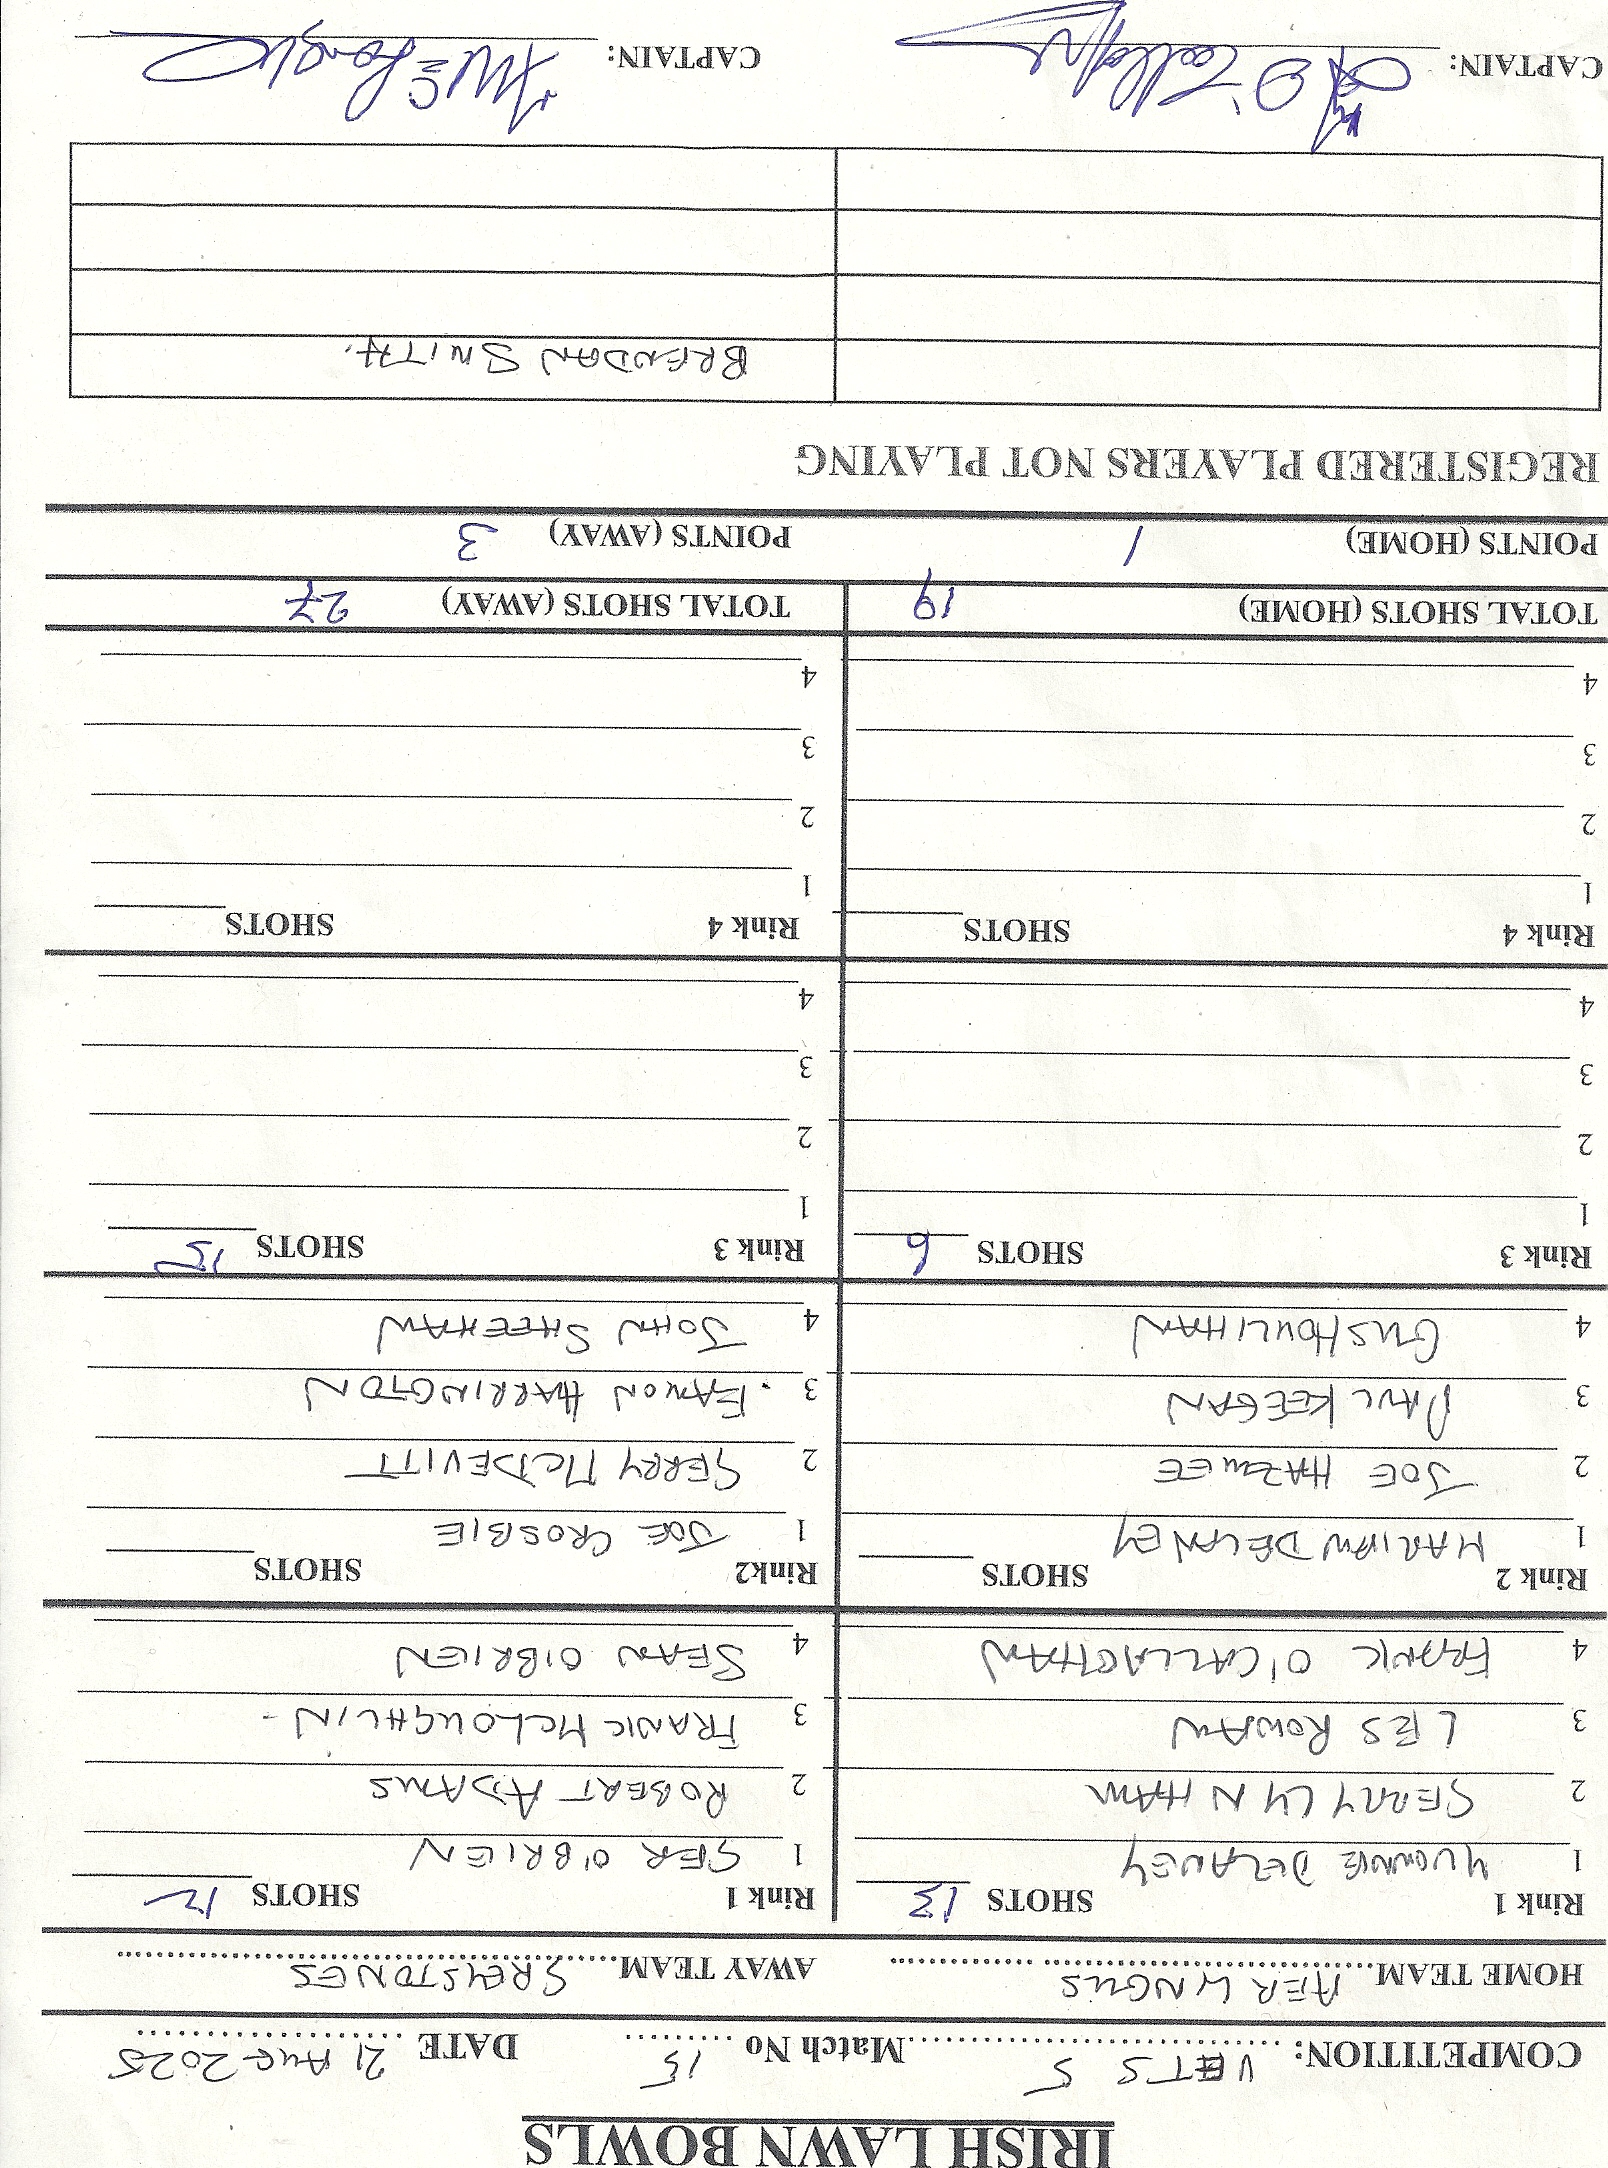 IRISH LAWN BOWLS
COMPETITION: VETS 5 Match No 15 DATE 21 AUG 2025
HOME TEAM AER LINGUS AWAY TEAM GREYSTONES
Rink 1 SHOTS 13 Rink 1 SHOTS 12
1 YVONNE DELANEY 1 GER O'BRIEN
2 GERRY LYNHAM 2 ROBERT ADAMS
3 LES ROWAN 3 FRANK MCLOUGHLIN -
4 FRANK O'CALLAGHAN 4 SEAN O'BRIEN
Rink 2 SHOTS Rink2 SHOTS
1 MARIAN DELANEY 1 JOE CROSBIE
2 JOE 2 GERRY MCDEVITT
3 PAUL KEEGAN 3 . EAMON HARRINGTON
4 GUS HOULIHAN 4 JOHN SHEEHAN
Rink 3 SHOTS 6 Rink 3 SHOTS 15
1 1
2 2
3 3
4 4
Rink 4 SHOTS Rink 4 SHOTS
1 1
2 2
3 3
4 4
TOTAL SHOTS (HOME) 19 TOTAL SHOTS (AWAY) 27
POINTS (HOME) 1 POINTS (AWAY) 3
REGISTERED PLAYERS NOT PLAYING
BRENDAN SMITH.
CAPTAIN: CAPTAIN: